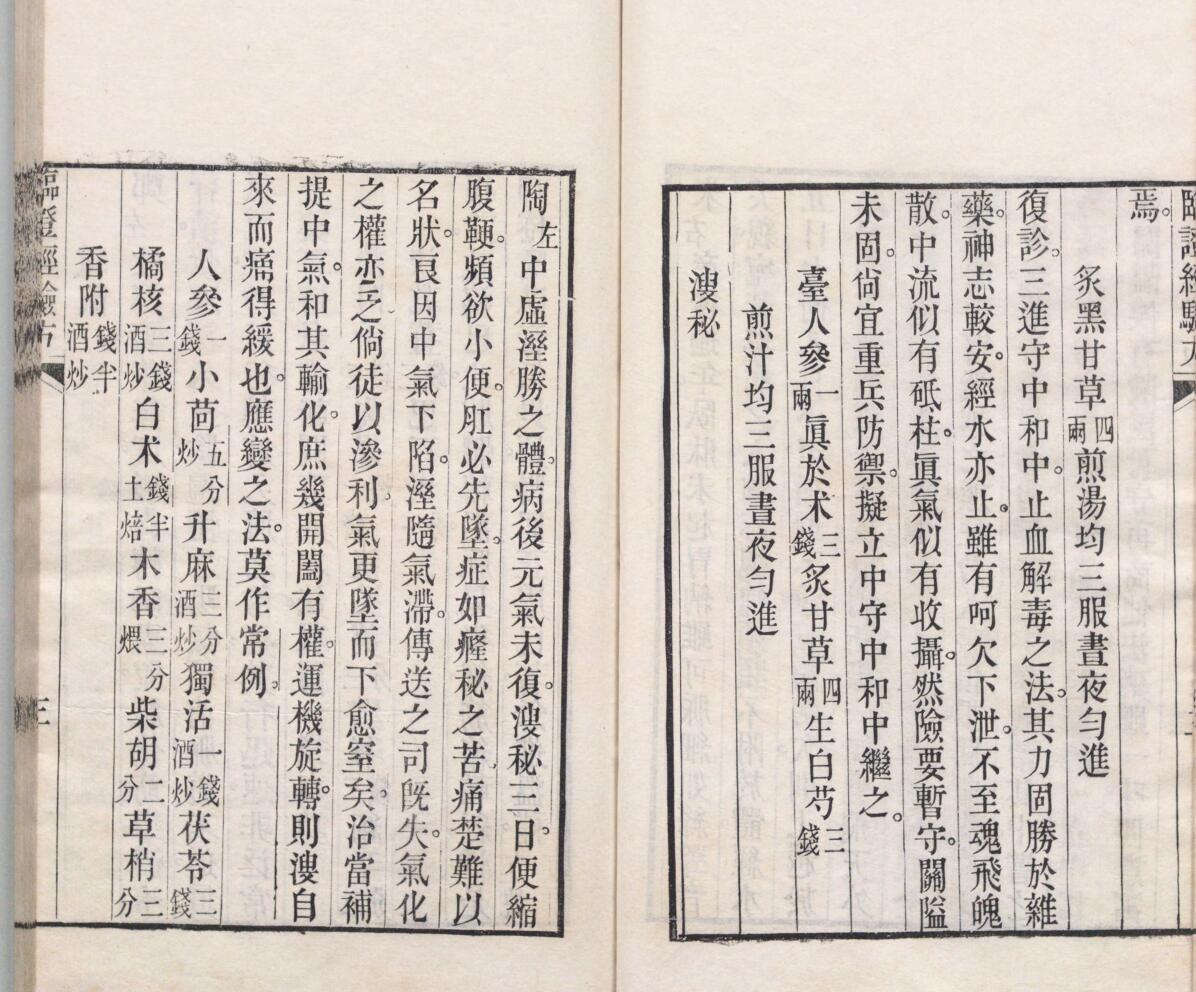 臨證經驗方
焉。
炙黑甘草四兩煎湯均三服晝夜勻進
復診。三進守中和中。止血解毒之法。其力固勝於雜
藥。神志較安。經水亦止。雖有呵欠下泄。不至魂飛魄
散。中流似有砥柱。眞氣似有收攝。然險要暫守。關隘
未固。尙宜重兵防禦。擬立中守中和中繼之。
臺人參一兩眞於术三錢炙甘草四兩生白芍三錢
煎汁均三服晝夜勻進
溲秘
陶左中虛溼勝之體。病後元氣未復。溲秘三日。便縮
腹鞕。頻欲小便。肛必先墜。症如癃秘之苦。痛楚難以
名狀。良因中氣下陷。溼隨氣滯。傳送之司旣失。氣化
之權亦乏。倘徒以滲利。氣更墜而下愈窒矣。治當補
提中氣。和其輸化。庶幾開闔有權。運機旋轉。則溲自
來而痛得緩也。應變之法。莫作常例。
人參一錢小茴五分炒升麻三分酒炒獨活一錢酒炒茯苓三錢
橘核三錢酒炒白术錢半土焙木香三分煨柴胡二分草梢三分
香附錢半酒炒
臨證經驗方
三